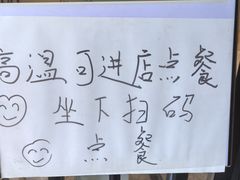 高温可进店点餐
坐下扫码
点餐